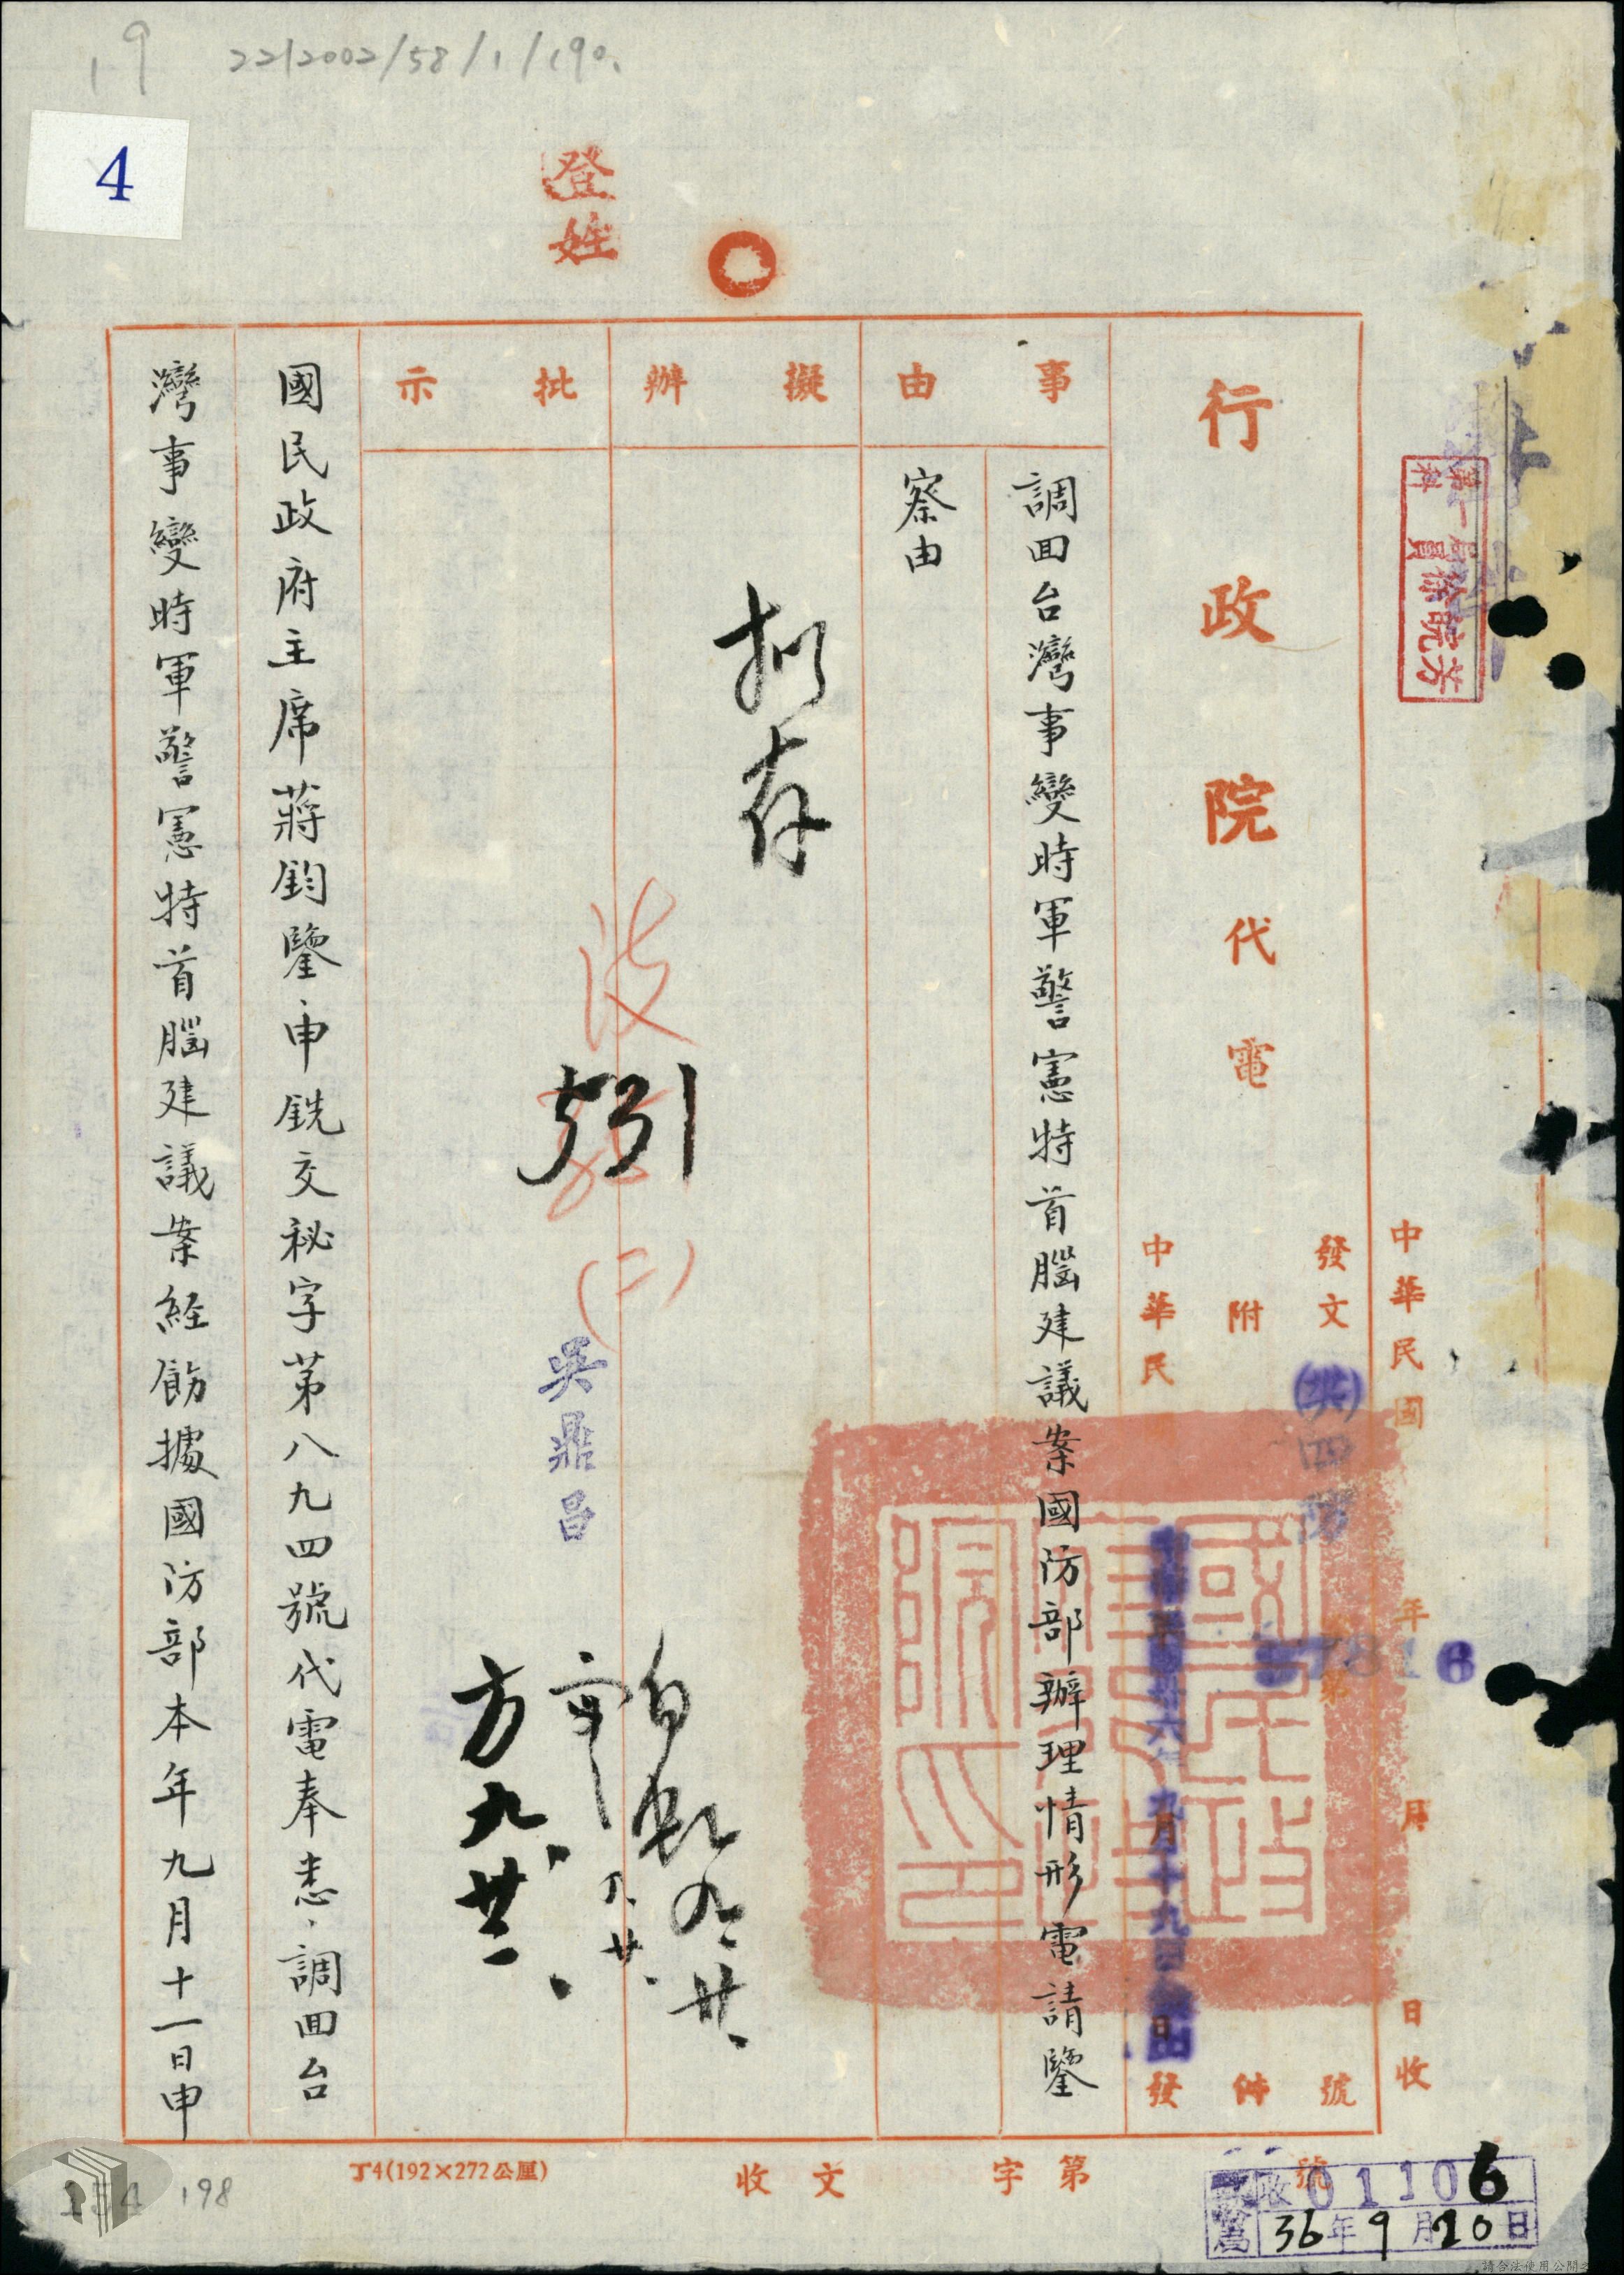 19
2212002/58/1/190.
4
登 姓
第一局
科員 徐皖芳
中華民國 年 月 日收
行政院代電
發文 (其)四防 字第 37816 號
附 件
中華民國卅六年九月十九日 發出
事由
調回台灣事變時軍警憲特首腦建議案國防部辦理情形電請鑒
察由
擬辦
擬存
批示
531
(二)
吳鼎昌
九、廿、
方 九、廿一、
國民政府主席蔣鈞鑒、申銑交秘字第八九四號代電奉悉、調回台
灣事變時軍警憲特首腦建議案経飭據國防部本年九月十一日申
丁4(192×272公厘)
收文 字第 號
收 01106
36年9月20日
198